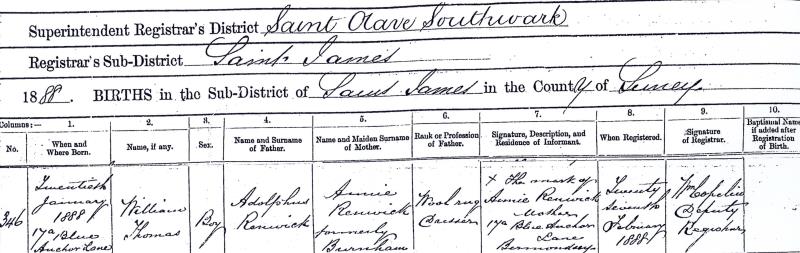 Superintendent Registrar's District Saint Olave Southwark
Registrar's Sub-District Saint James
1888. BIRTHS in the Sub-District of Saint James in the County of Surrey
Columns:— 1. 2. 3. 4. 5. 6. 7. 8. 9. 10.
No. When and Where Born. Name, if any. Sex. Name and Surname of Father. Name and Maiden Surname of Mother. Rank or Profession of Father. Signature, Description, and Residence of Informant. When Registered. Signature of Registrar. Baptismal Name if added after Registration of Birth.
346
Twentieth
January
1888
17a Blue
Anchor Lane
William
Thomas
Boy
Adolphus
Renwick
Annie
Renwick
formerly
Burnham
Mob rug
Dresser
X The mark of
Annie Renwick
Mother
17a Blue Anchor
Lane
Bermondsey
Twenty
seventh
February
1888
Wm
Deputy
Registrar